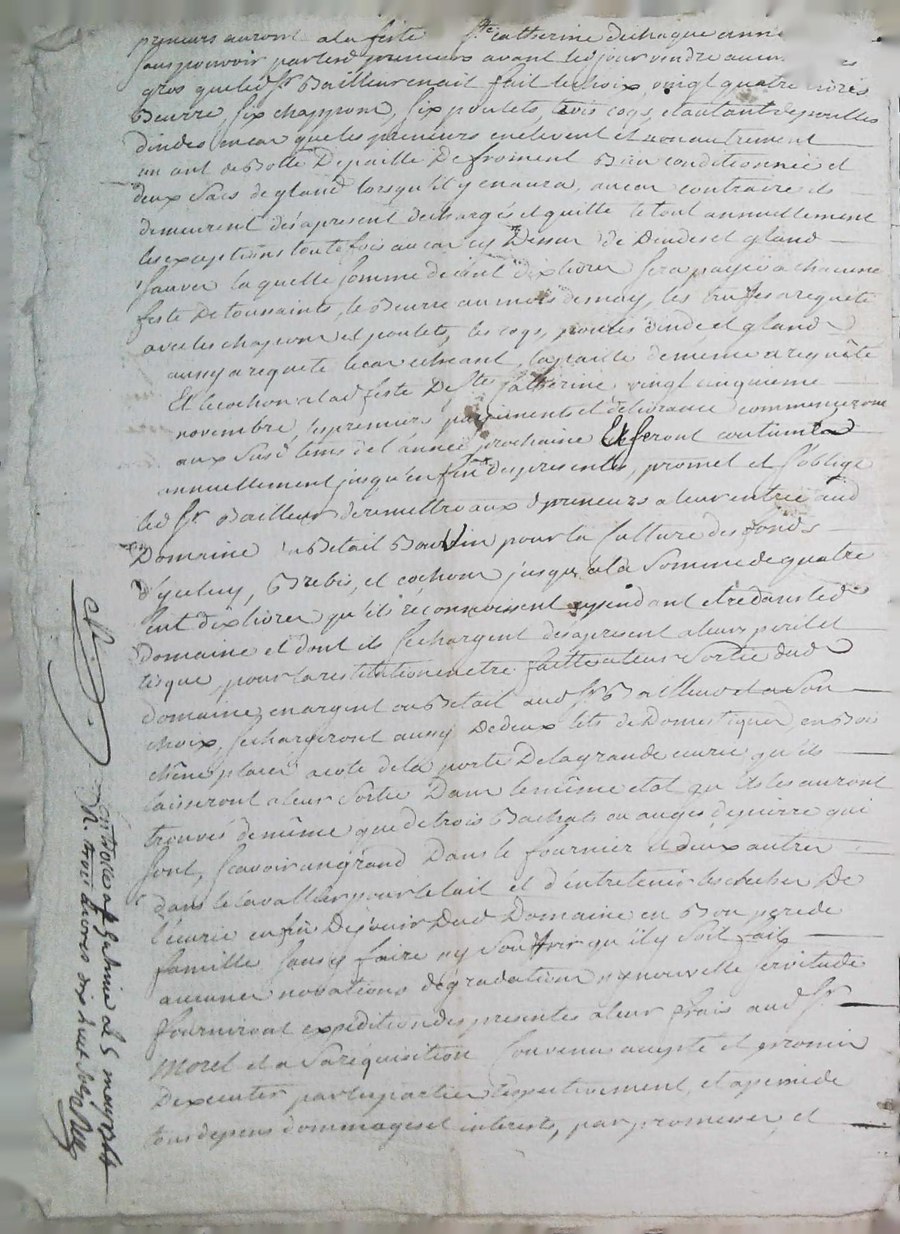 preneurs auront a la feste Ste catherine de chaque anné
sans pouvoir par les d preneurs avant led jour vendre aucun
gros que led Sr Bailleur en ait fait le choix, vingt quatre livres
Beurre, six chappons, six poulets, trois coqs, et autant de poulles
dindes en cas que les preneurs en elevent et non autrement
un cent de Botte De paille De froment Bien conditionnée et
deux sacs de gland lorsqu'il y en aura, au cas contraire ils
demeurent des a present dechargés et quitte le tout annuellement
les exceptions toutefois au cas cy Dessus de Dindes et gland
sauver laquelle somme de cent dix livres sera payée a chacune
feste De toussaints, le Beurre au mois de may, les truffes a requête
avec les chapons et poulets, les coqs, poules d'inde et gland
aussy a requete le cas echeant, la paille de meme a requête
Et le cochon a lad feste De Ste Catherine vingt cinquieme
novembre, les premiers payements et delivrance commenceront
aux susd tems de l'année prochaine Et seront continués
annuellement jusqu'en fin des presentes, promet et s'oblige
led Sr Bailleur de remettre aux d preneurs a leur entrée aud
Domaine Betail Bouvin pour la Culture des fonds
d'yceluy, Brebis, et cochons jusqu'a la Somme de quatre
cent dix livres qu'ils reconnoissent cependant etre dans led
Domaine et dont ils se chargent des a present a leurs peril et
risque, pour la restitution en etre faitte a leur Sortie dud
domaine, en argent ou Betail aud Sr Bailleur et a Son
choix, se chargeront aussy De deux lits de Domestiques, en Bois
chêne placés a coté de la porte De la grande ecurie qu'ils
laisseront a leur Sortie Dans le même etat qu'ils les auront
trouvés de même que de trois Bachats ou auges de pierre qui
sont, scavoir un grand Dans le fournier et deux autres
dans le cavallier pour le lait et d'entretenir les creches De
l'écurie enfin De jouir Dud Domaine en Bon pere de
famille sans y faire ny Souffrir qu'il y Soit fait
aucunes novations degradations ny nouvelle servitude
fourniront expedition des presentes a leur frais aud Sr
Morel et a Sa réquisition Convenu accepté et promis
D'executer par les parties respectivement, et a peine de
tous depens dommages et interests, par promesses, et
Controllé a le 5 may 1764
R. trois livres dix huit sols